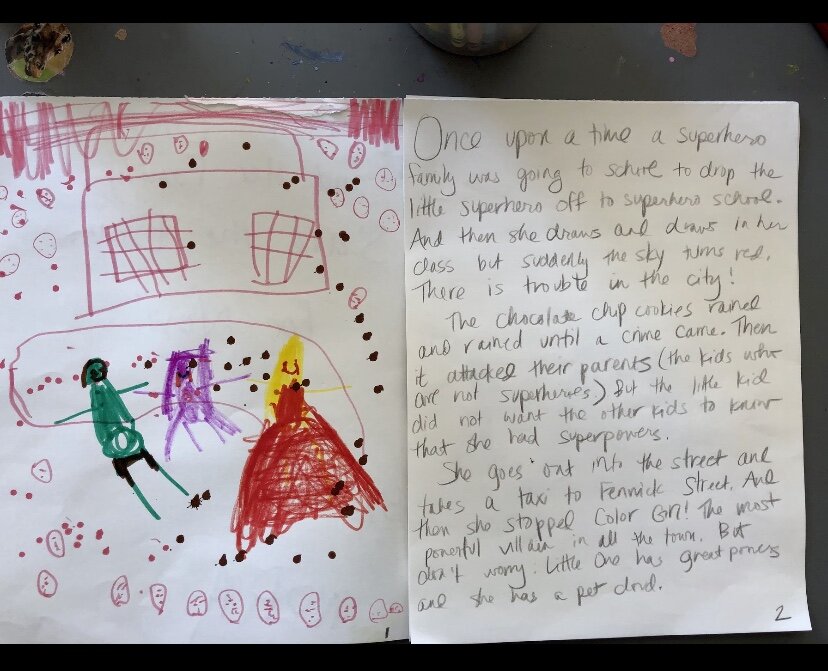 Once upon a time a superhero
family was going to school to drop the
little superhero off to superhero school.
And then she draws and draws in her
class but suddenly the sky turns red.
There is trouble in the city!
The chocolate chip cookies rained
and rained until a crime came. Then
it attacked their parents (the kids who
are not superheroes) But the little kid
did not want the other kids to know
that she had superpowers.
She goes out into the street and
takes a taxi to Fennick Street. And
then she stopped Color Girl! The most
powerful villain in all the town. But
don't worry: Little One has great powers
and she has a pet
1
2